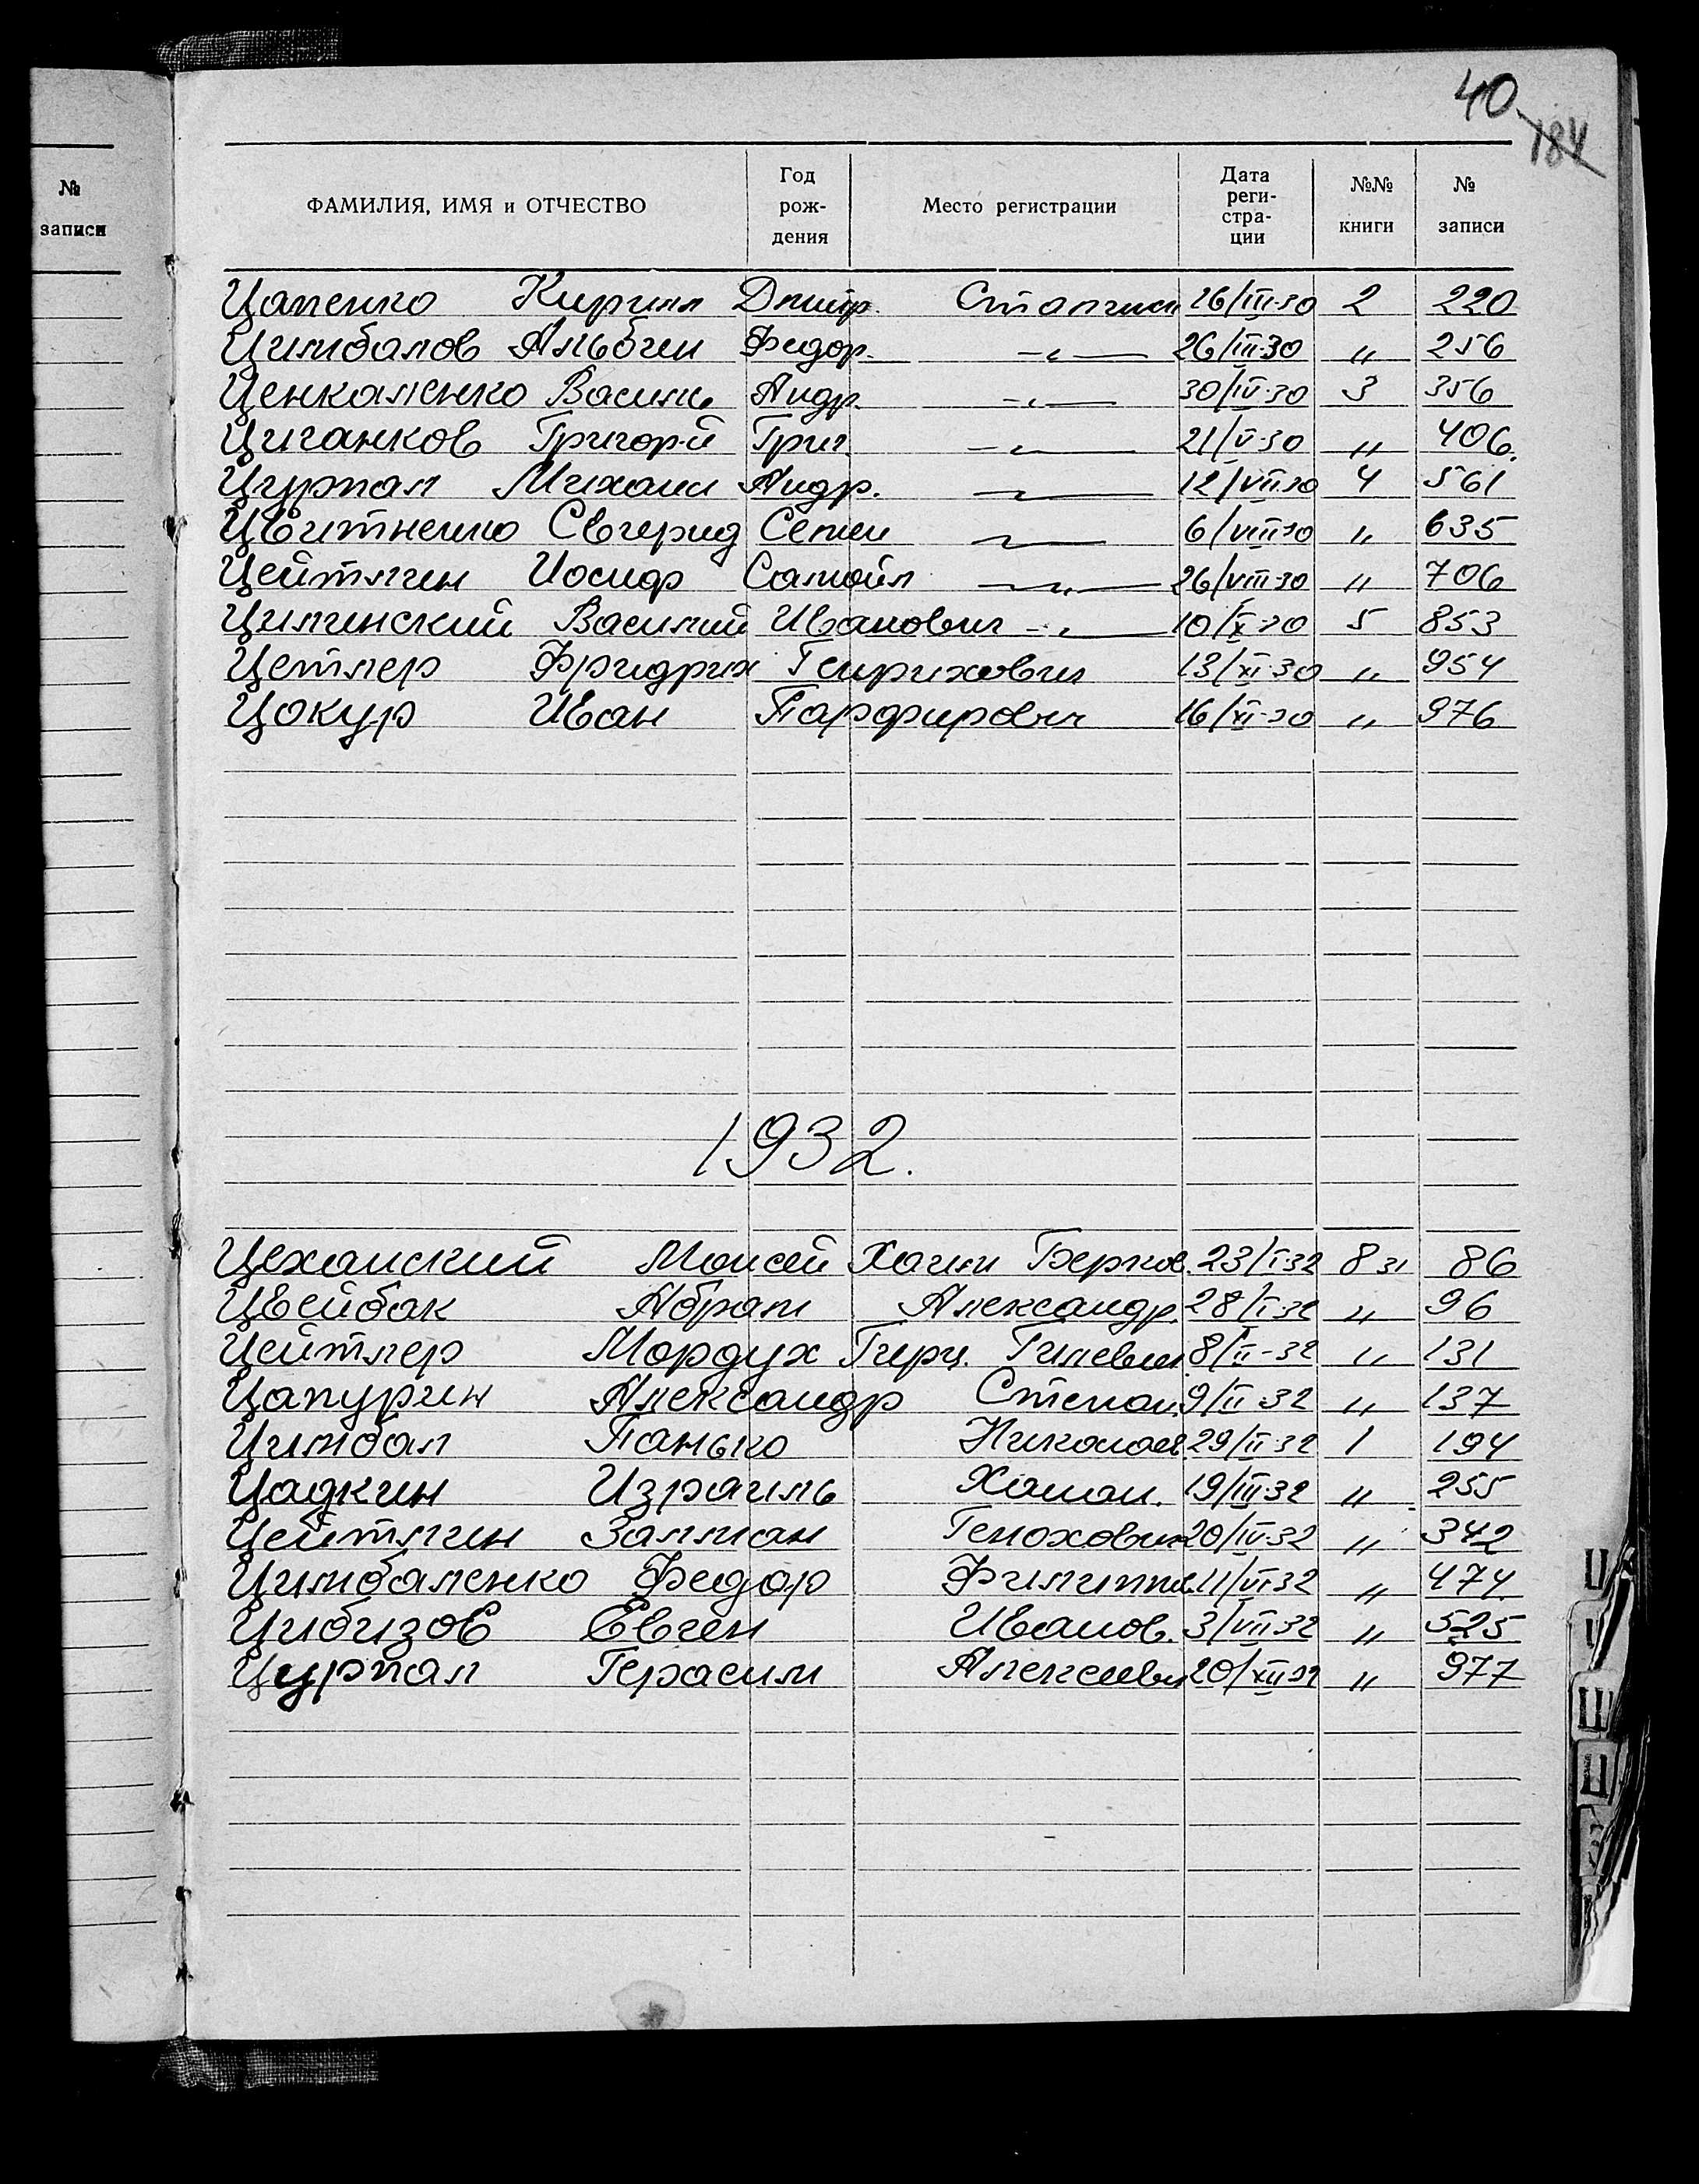 40
184
№
записи
ФАМИЛИЯ, ИМЯ и ОТЧЕСТВО Год рождения Место регистрации Дата регистрации №№ книги № записи
Цапенко Кирилл Дмитр. Сталинск 26/III-30 2 220
Цимбалов Федор. -"- 26/III-30 " 256
Ценкаленко Василь Андр. -"- 30/IV-30 3 356
Циганков Григорй Григ. -"- 21/V-30 " 406.
Цурпал Михаил Андр. -"- 12/VII-30 4 561
Семен -"- 6/VIII-30 " 635
Цейтлин Иосиф Самойл -"- 26/VIII-30 " 706
Цилинский Василий Иванович -"- 10/X-30 5 853
Цетлер Фридрих Генрихович 13/XI-30 " 954
Цокур Иван Парфирович 16/XI-30 " 976
1932.
Цеханский Моисей Хаим Берков. 23/I-32 8 31 86
Цвейбак Абрам Александр. 28/I-32 " 96
Цейтлер Мордух Гирц. Гилевич 8/II-32 " 131
Цапурин Александр Степан. 9/II-32 " 137
Цимбал Панько Николаев. 29/II-32 1 194
Цадкин Израиль Хаман. 19/III-32 " 255
Цейтлин Залман Генохович 20/IV-32 " 342
Цимбаленко Федор Филиппов. 11/VI-32 " 474
Цибизов Евген Иванов. 3/VII-32 " 525
Цурпал Герасим Алексеевич 20/XII-32 " 977